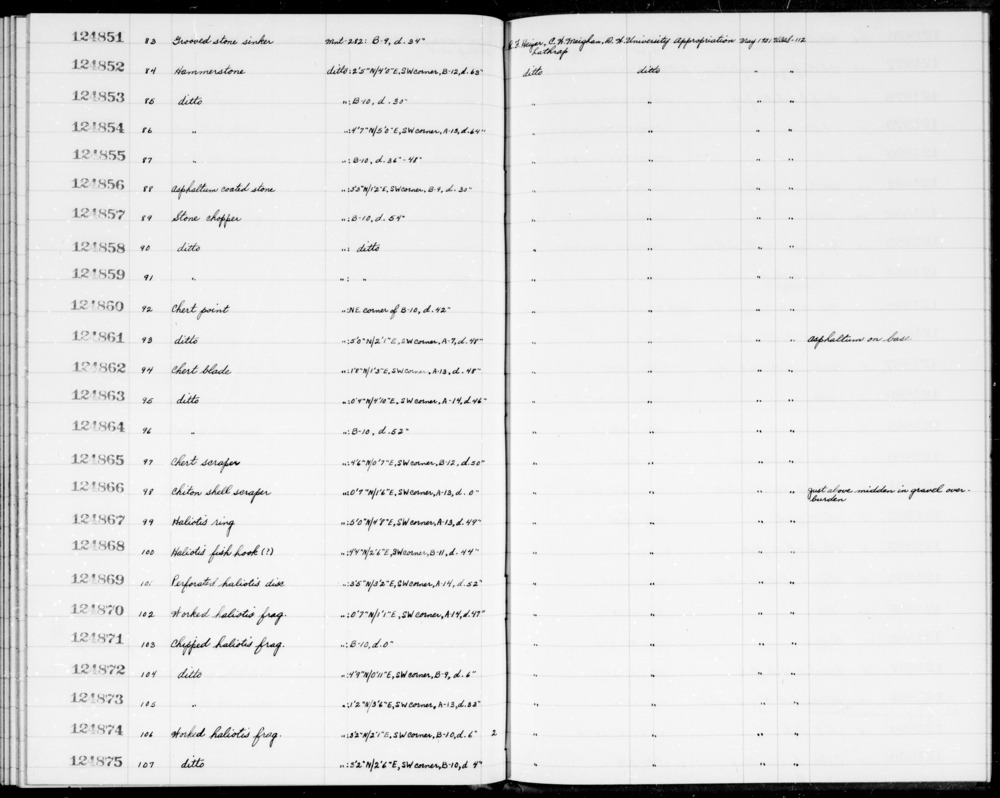 124851 83 Grooved stone sinker Mnt-282: B-9, d. 34" R. F. Heizer, C. W. Meighan, D. W. University Appropriation May 1951
Lathrap
124852 84 Hammerstone ditto: 2'5"N/4'0"E, SW corner, B-12, d. 63" ditto ditto " "
124853 85 ditto ": B-10, d. 30" " " " "
124854 86 " ": 4'7"N/5'0"E, SW corner, A-13, d. 64" " " " "
124855 87 " ": B-10, d. 36"-48" " " " "
124856 88 Asphaltum coated stone ": 5'3"N/1'2"E, SW corner, B-9, d. 30" " " " "
124857 89 Stone chopper ": B-10, d. 54" " " " "
124858 90 ditto ": ditto " " " "
124859 91 " ": " " " " "
124860 92 Chert point ": NE corner of B-10, d. 42" " " " "
124861 93 ditto ": 5'0"N/2'1"E, SW corner, A-7, d. 48" " " " " asphaltum on base
124862 94 Chert blade ": 1'8"N/1'3"E, SW corner, A-13, d. 48" " " " "
124863 95 ditto ": 0'4"N/4'10"E, SW corner, A-14, d. 46" " " " "
124864 96 " ": B-10, d. 52" " " " "
124865 97 Chert scraper ": 4'6"N/0'7"E, SW corner, B-12, d. 50" " " " "
124866 98 Chiton shell scraper ": 0'7"N/1'6"E, SW corner, A-13, d. 0" " " " " just above midden in gravel over-
burden
124867 99 Haliotis ring ": 5'0"N/4'8"E, SW corner, A-13, d. 49" " " " "
124868 100 Haliotis fish hook (?) ": 4'4"N/2'6"E, SW corner, B-11, d. 44" " " " "
124869 101 Perforated haliotis disc ": 3'5"N/3'2"E, SW corner, A-14, d. 52" " " " "
124870 102 Worked haliotis frag. ": 0'7"N/1'1"E, SW corner, A-14, d. 47" " " " "
124871 103 Chipped haliotis frag. ": B-10, d. 0" " " " "
124872 104 ditto ": 4'9"N/0'11"E, SW corner, B-9, d. 6" " " " "
124873 105 " ": 1'2"N/3'6"E, SW corner, A-13, d. 32" " " " "
124874 106 Worked haliotis frag. ": 3'2"N/2'1"E, SW corner, B-10, d. 6" 2 " " " "
124875 107 ditto ": 3'2"N/2'6"E, SW corner, B-10, d 4" " " " "